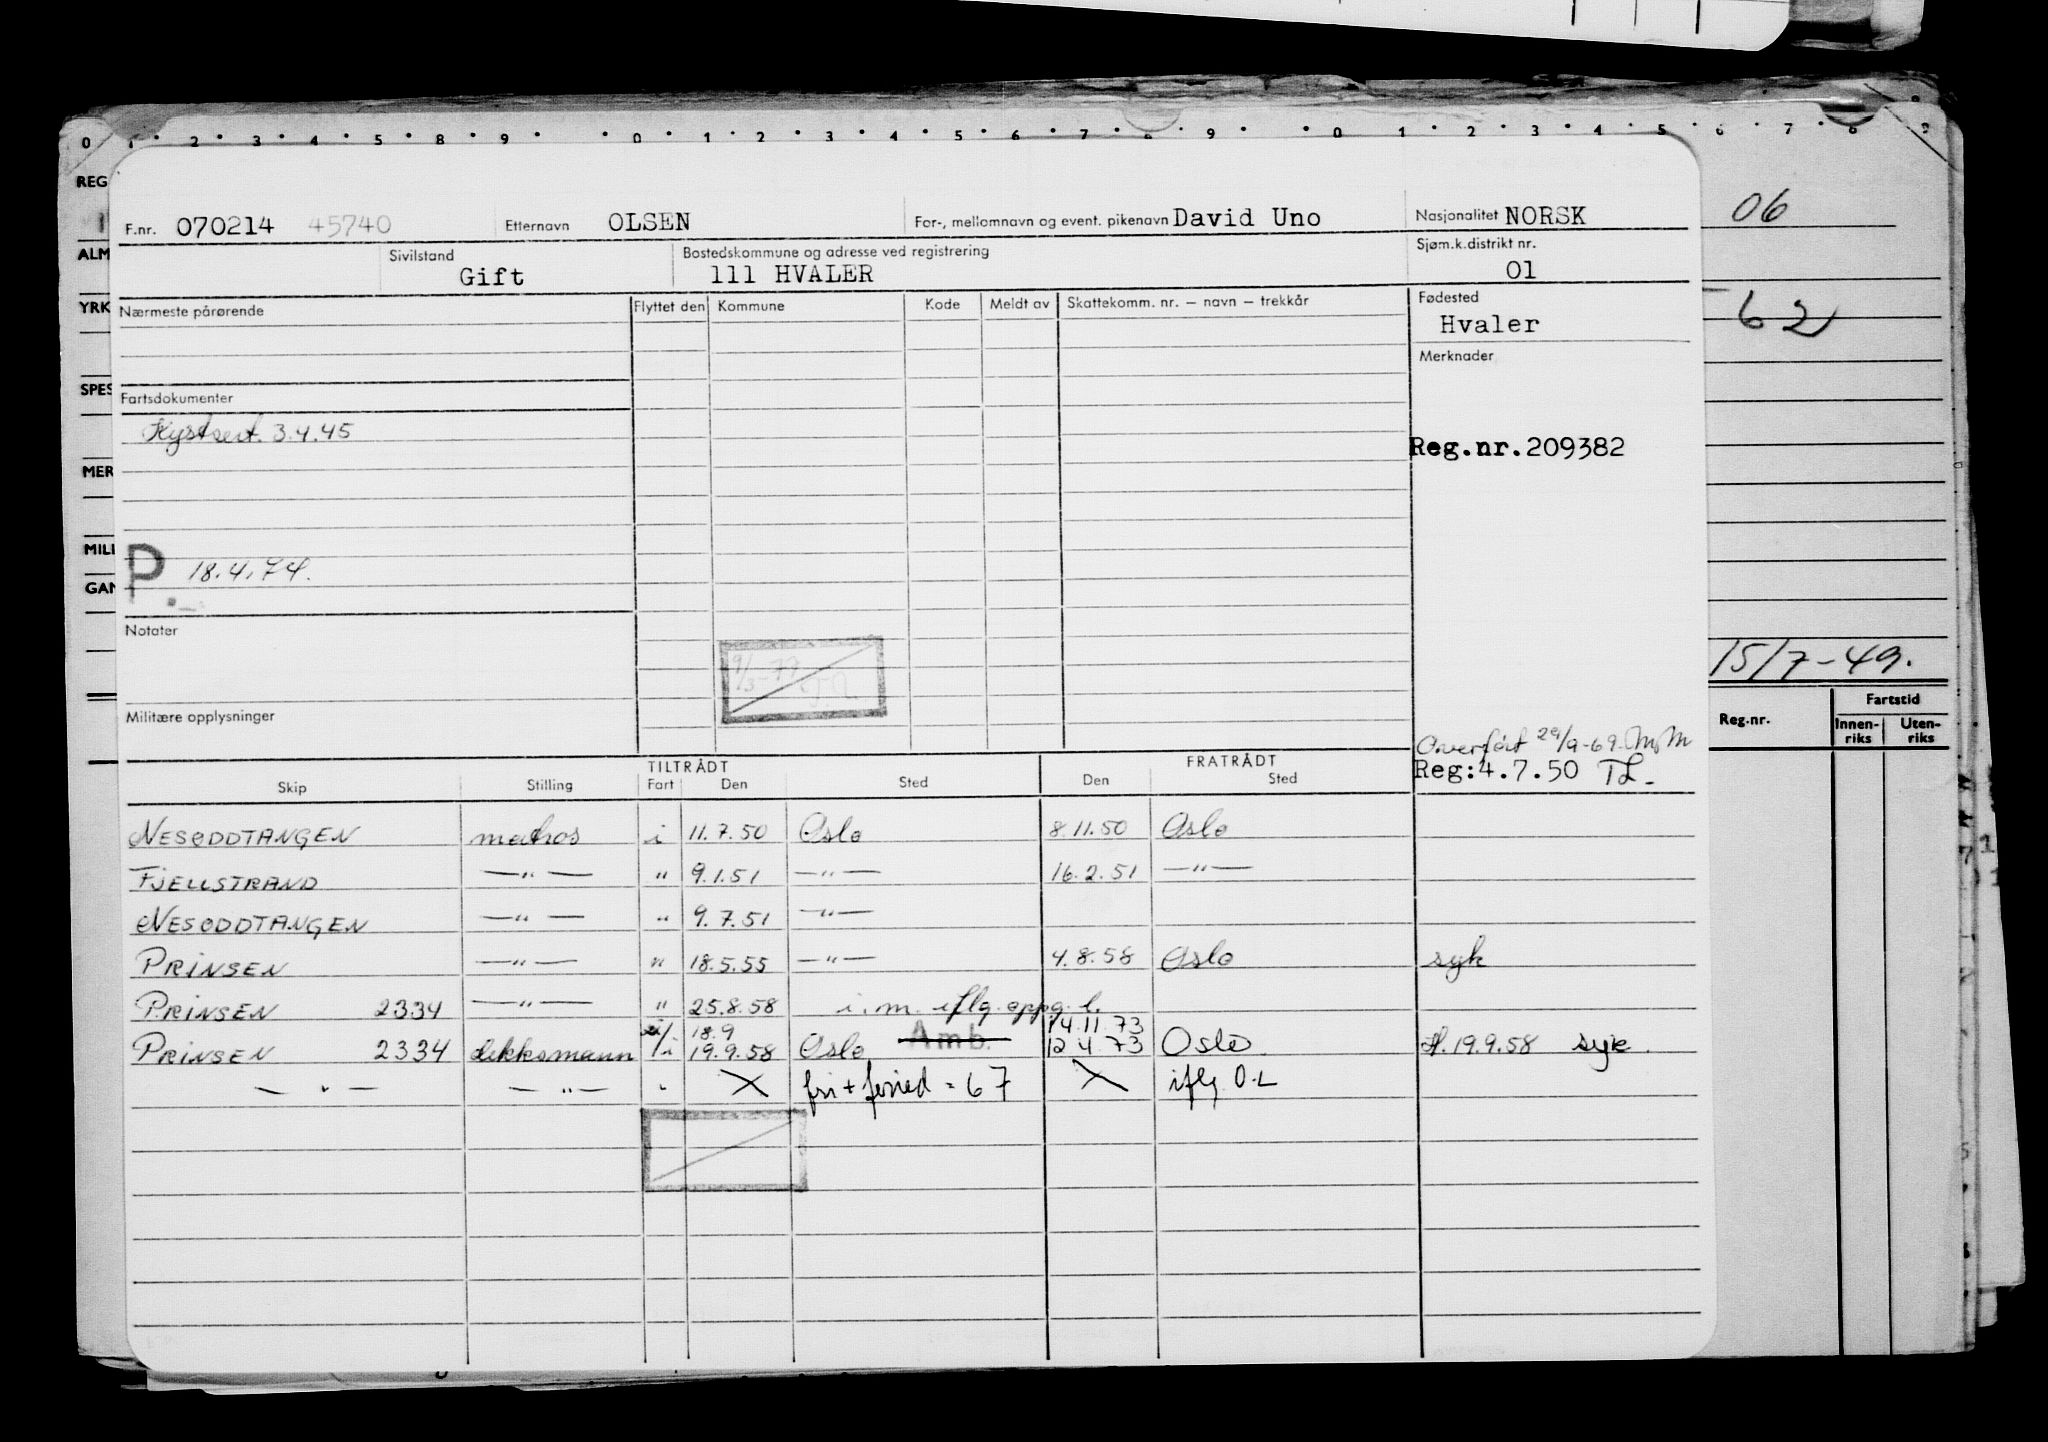 0 1 2 3 4 5 8 9 0 1 2 3 4 5 6 7 8 9 0 1 2 3 4 5 6 7 8 9
REG
F.nr. 070214 45740 Etternavn OLSEN For-, mellomnavn og event. pikenavn David Uno Nasjonalitet NORSK 06
ALM
Sivilstand Gift Bostedskommune og adresse ved registrering 111 HVALER Sjøm.k.distrikt nr. 01
YRK
Nærmeste pårørende Flyttet den Kommune Kode Meldt av Skattekomm. nr. — navn — trekkår Fødested
Hvaler 62
Merknader
SPES
Fartsdokumenter
Kystsert. 3.4.45
Reg.nr.209382
MER
MILI
P. 18.4.74.
GAN
Notater
9/3-79
15/7-49.
Militære opplysninger
Reg.nr. Fartstid
Innen-riks Uten-riks
Overført 29/9-69. M.M
TILTRÅDT FRATRÅDT Reg:4.7.50 TL-
Skip Stilling Fart Den Sted Den Sted
NESODDTANGEN matros i 11.7.50 Oslo 8.11.50 Oslo
FJELLSTRAND —"— " 9.1.51 —"— 16.2.51 —"—
NESODDTANGEN —"— " 9.7.51 —"—
PRINSEN —"— " 18.5.55 —"— 4.8.58 Oslo syk
PRINSEN 2334 —"— " 25.8.58 i.m. iflg. oppg.
18.9 14.11.73
PRINSEN 2334 dekksmann i 19.9.58 Oslo Amb. 12.4.73 Oslo 19.9.58 syk.
—"— —"— " X fri + feried = 67 X iflg O-L